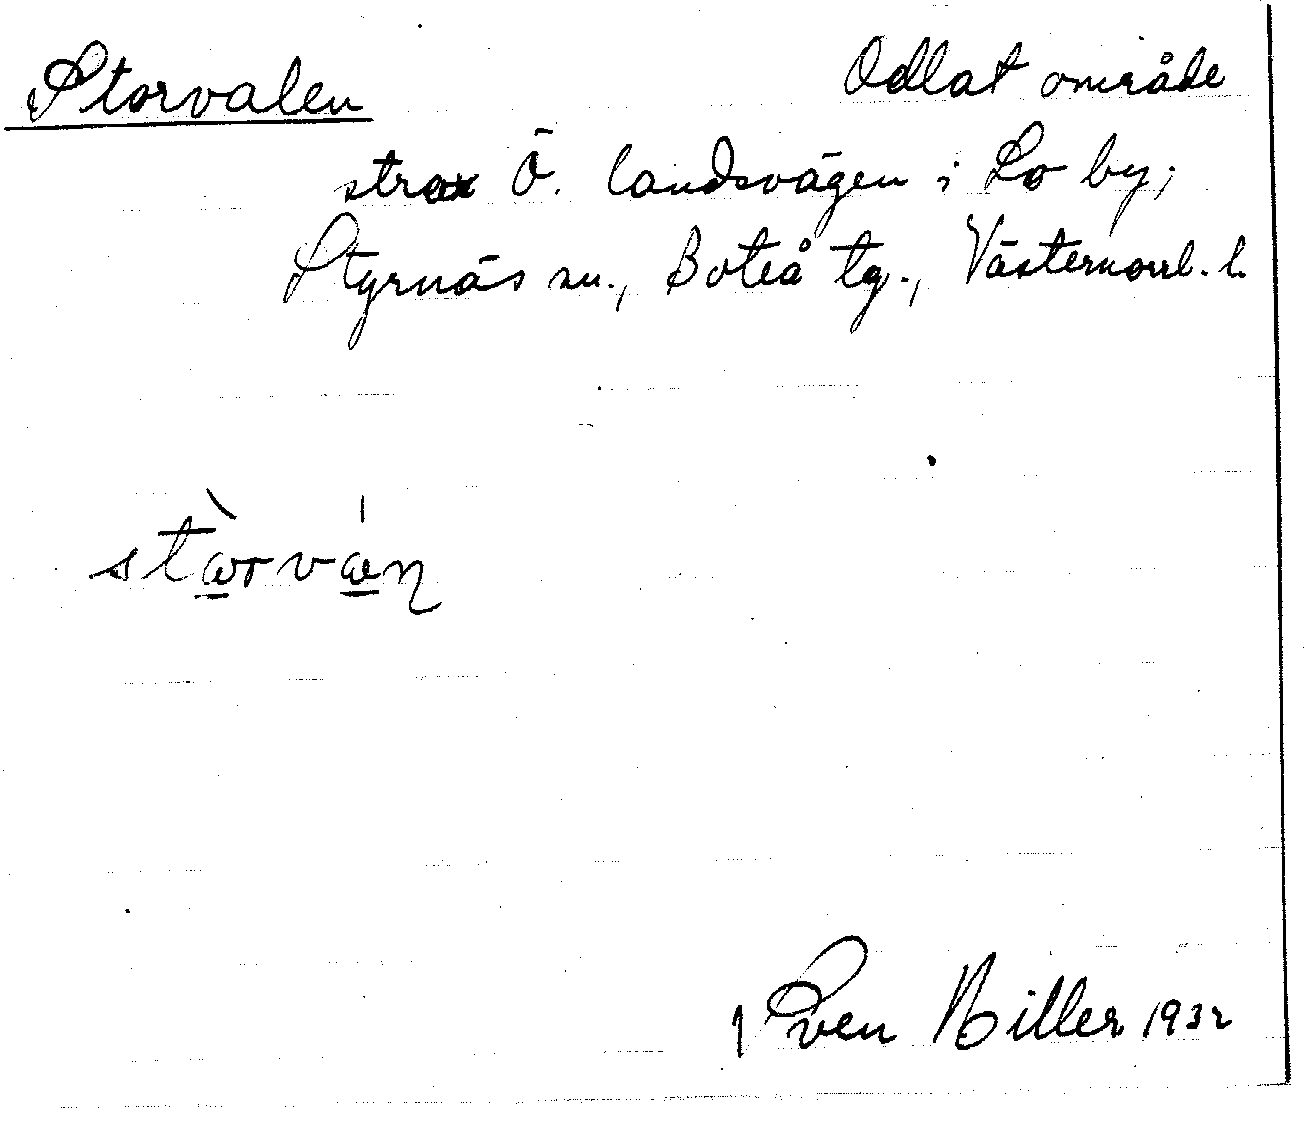 Storvalen Odlat område
strax Ö. landsvägen i Lo by;
Styrnäs sn., Boteå tg., Västernorrl. l.
Sven Hiller 1932